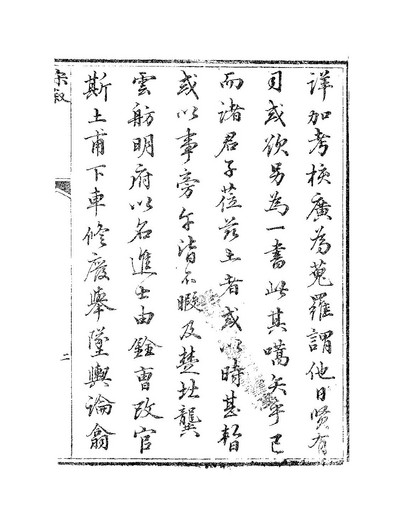 詳加考核廣為蒐羅謂他日賢有
司或欲另為一書此其嚆矢乎已
而諸君子蒞茲土者或以時甚暫
或以事旁午皆不暇及楚北龔
雲舫明府以名進士由銓曹改官
斯土甫下車修廢舉墜輿論翕
宋敘
二